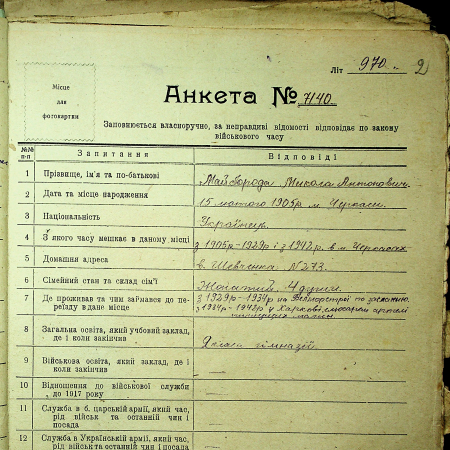 Літ 970 2
Місце
для
фотокартки
Анкета № 7140
Заповнюється власноручно, за неправдиві відомості відповідає по закону
військового часу
№№ п-п Запитання Відповіді
1 Прізвище, ім'я та по-батькові Майборода Микола Антонович
2 Дата та місце народження 15 лютого 1905р. м. Черкаси
3 Національність Українець
4 З якого часу мешкає в даному місці з 1905р-1929р і з 1942р. в м. Черкасах
5 Домашня адреса в. Шевченка N 273.
6 Сімейний стан та склад сім'ї Жонатий 4 душі
7 Де проживав та чим займався до пе-
реїзду в дане місце
з 1929р - 1934р на
з 1934р - 1942р у Харкові, слюсарем артелі
8 Загальна освіта, який учбовий заклад,
де і коли закінчив
гімназії
9 Військова освіта, який заклад, де і
коли закінчив
10 Відношення до військової служби
до 1917 року
11 Служба в б. царській армії, який час,
рід військ та останній чин і
посада
12 Служба в Українській армії, який час,
рід військ та останній чин і посада